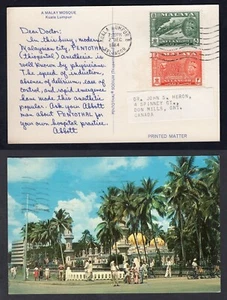 A MALAY MOSQUE
Kuala Lumpur
Dear Doctor:
In this busy, modern
Malaysian city, PENTOTHAL
(thiopental) anesthesia is
well known by physicians.
The speed of induction,
absence of delirium, ease
of control, and rapid emergence
have made this anesthetic
popular. Ask your Abbott
man about PENTOTHAL for
your own hospital practice.
Abbott
MALAYA
MALAYA
DR. JOHN C. HERON,
SPINNEY CT.,
DON MILLS, ONT.
CANADA
PRINTED MATTER